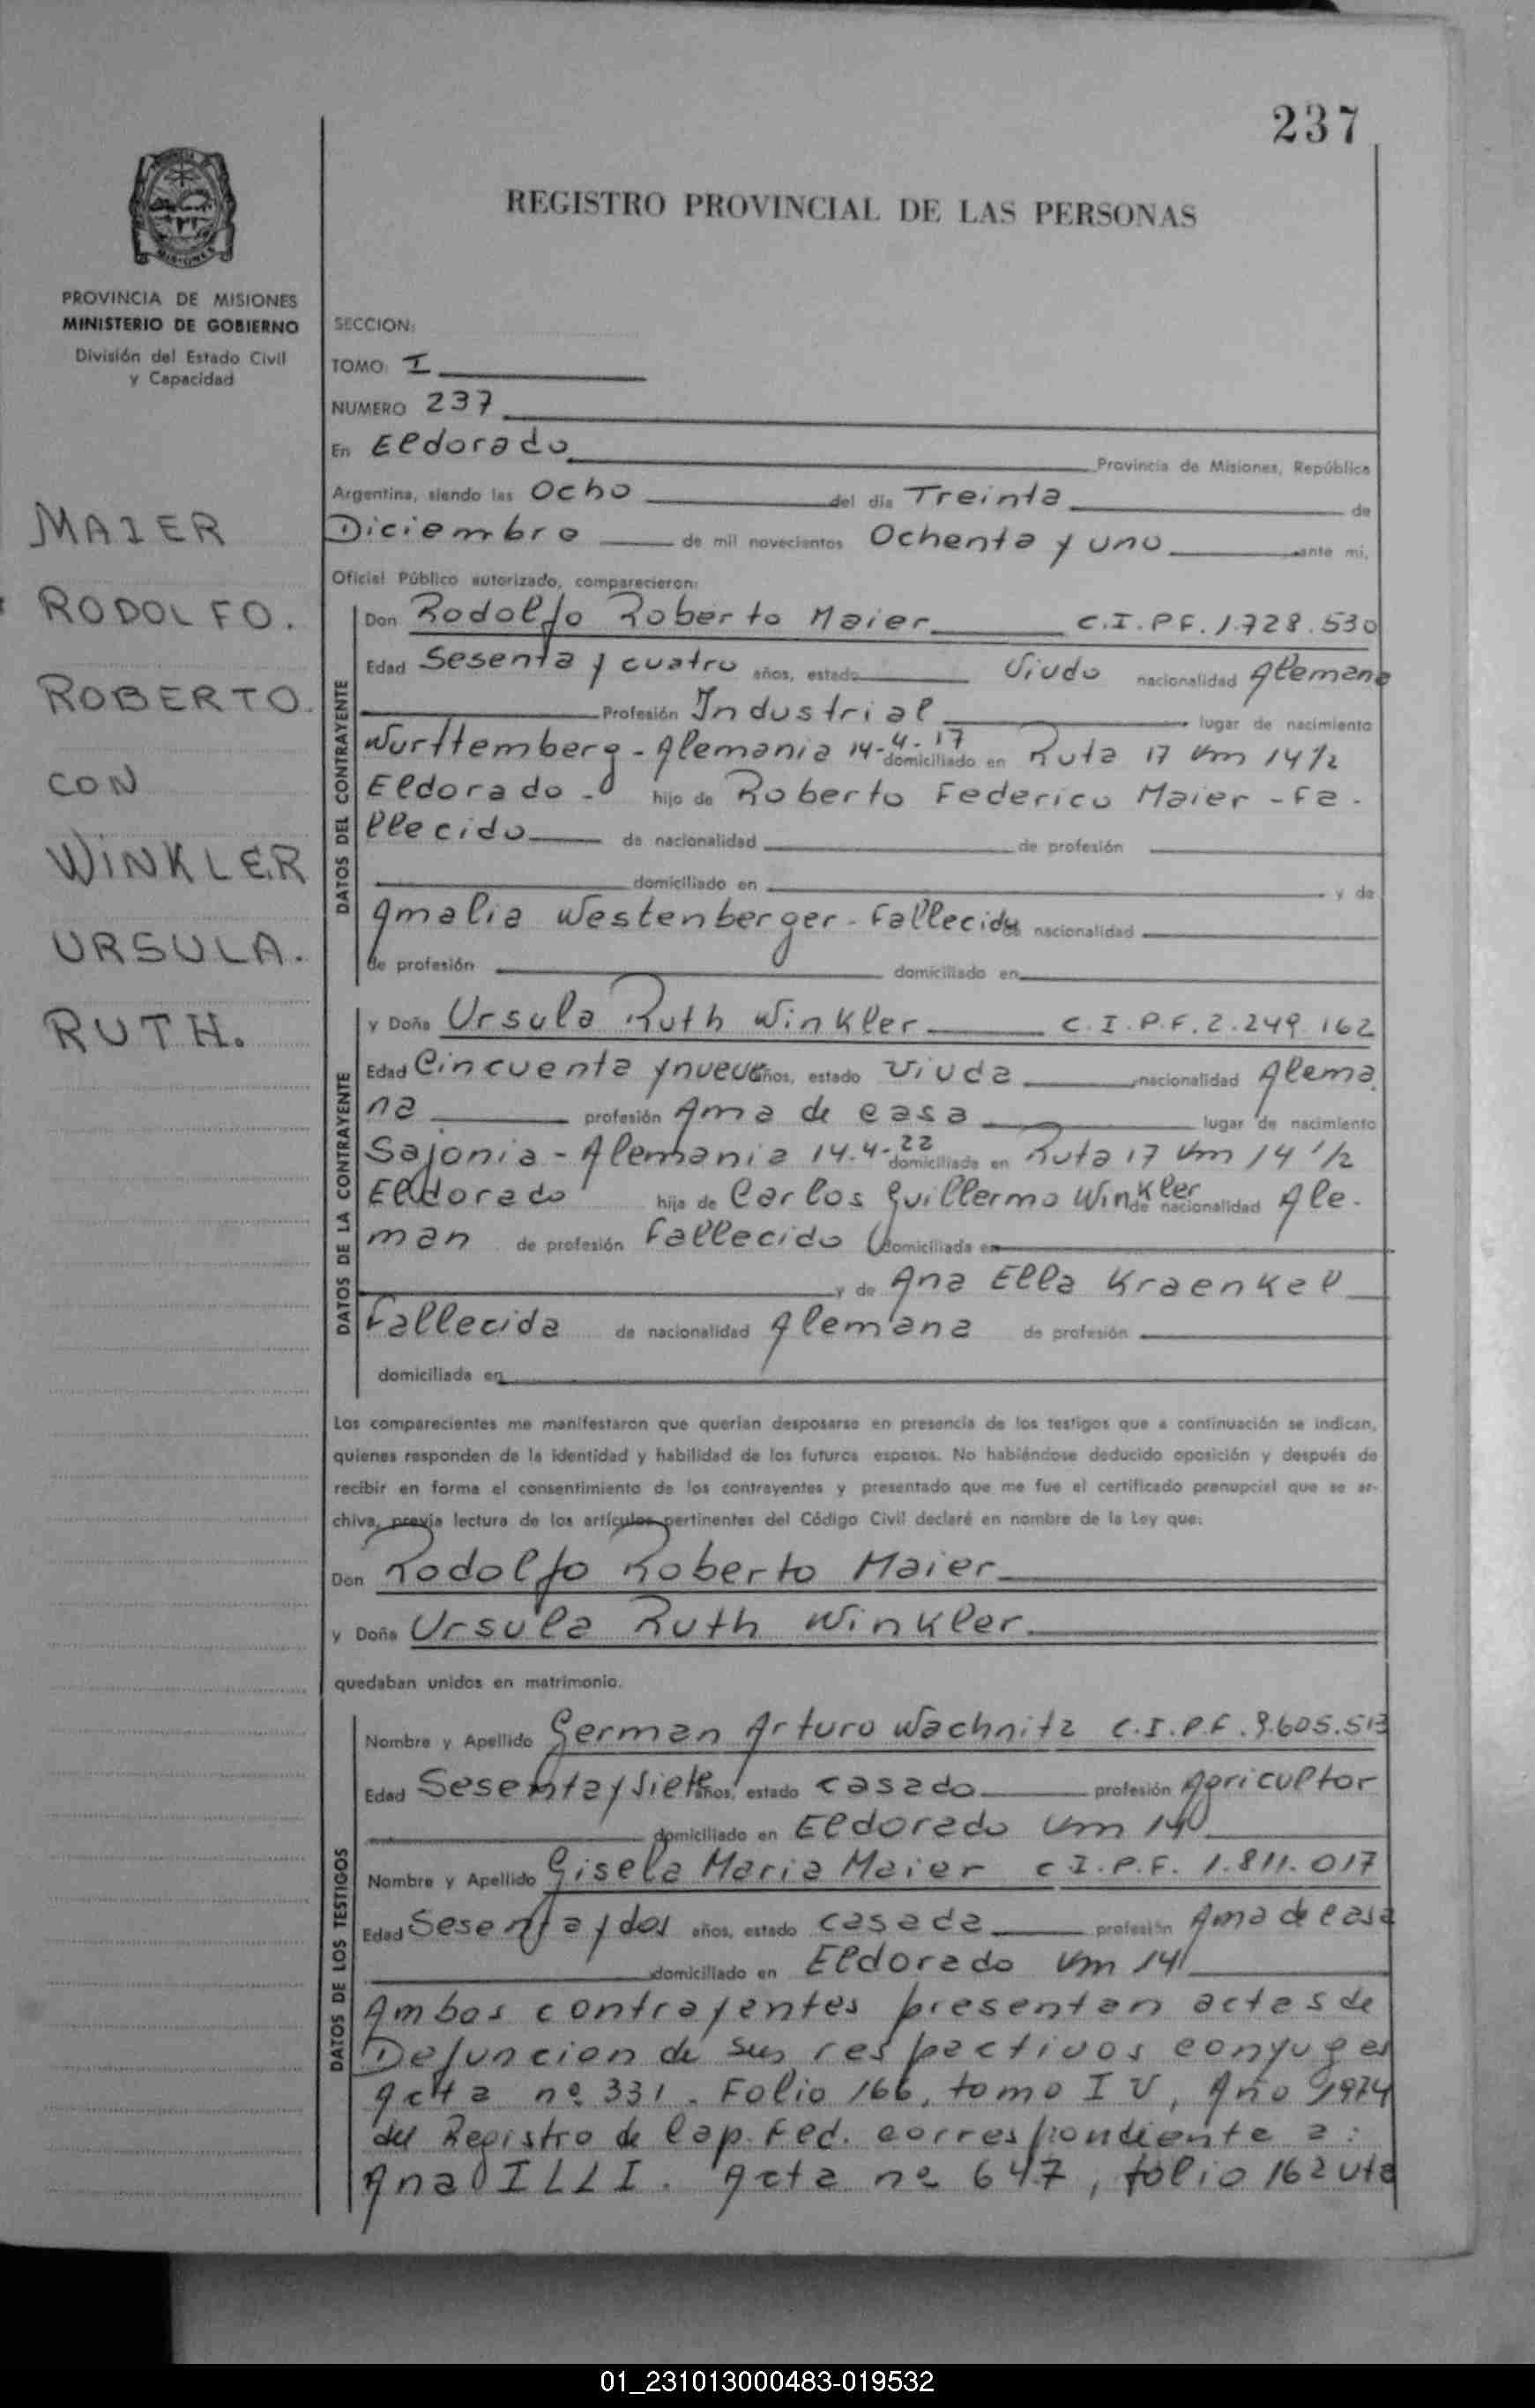 237
REGISTRO PROVINCIAL DE LAS PERSONAS
PROVINCIA DE MISIONES
MINISTERIO DE GOBIERNO
División del Estado Civil
y Capacidad
MAIER
RODOLFO.
ROBERTO.
CON
WINKLER
URSULA.
RUTH.
SECCION:
TOMO: I
NUMERO 237
En Eldorado Provincia de Misiones, República
Argentina, siendo las Ocho del día Treinta de
Diciembre de mil novecientos Ochenta y uno ante mi,
Oficial Público autorizado, comparecieron:
DATOS DEL CONTRAYENTE
Don Rodolfo Roberto Maier C.I.P.F. 1.728.530
Edad Sesenta y cuatro años, estado Viudo nacionalidad Alemana
Profesión Industrial lugar de nacimiento
Wurttemberg - Alemania 14-4-17 domiciliado en Ruta 17 Km 14 1/2
Eldorado - hijo de Roberto Federico Maier - Fa-
llecido de nacionalidad de profesión
domiciliado en y de
Amalia Westenberger - Fallecida nacionalidad
de profesión domiciliado en
DATOS DE LA CONTRAYENTE
y Doña Ursula Ruth Winkler C.I.P.F. 2.249.162
Edad Cincuenta y nueve años, estado Viuda nacionalidad Alema
na profesión Ama de casa lugar de nacimiento
Sajonia - Alemania 14.4-22 domiciliada en Ruta 17 Km 14 1/2
Eldorado hija de Carlos Guillermo Winkler de nacionalidad Ale-
man de profesión Fallecido domiciliada en
y de Ana Ella Kraenkel
Fallecida de nacionalidad Alemana de profesión
domiciliada en
Los comparecientes me manifestaron que querían desposarse en presencia de los testigos que a continuación se indican,
quienes responden de la identidad y habilidad de los futuros esposos. No habiéndose deducido oposición y después de
recibir en forma el consentimiento de los contrayentes y presentado que me fue el certificado prenupcial que se ar-
chiva, previa lectura de los artículos pertinentes del Código Civil declaré en nombre de la Ley que:
Don Rodolfo Roberto Maier
y Doña Ursula Ruth Winkler
quedaban unidos en matrimonio.
DATOS DE LOS TESTIGOS
Nombre y Apellido German Arturo Wachnitz C.I.P.F. 9.605.513
Edad Sesenta y Siete años, estado casado profesión Agricultor
domiciliado en Eldorado Km 14
Nombre y Apellido Gisela Maria Maier C.I.P.F. 1.811.017
Edad Sesenta y dos años, estado casada profesión Ama de casa
domiciliado en Eldorado Km 14
Ambos contrayentes presentan actas de
Defuncion de sus respectivos conyuges
Acta nº 331. Folio 166, tomo IV, Año 1974
del Registro de Cap. Fed. correspondiente a:
Ana ILLI. Acta nº 647, folio 162 vta
01_231013000483-019532